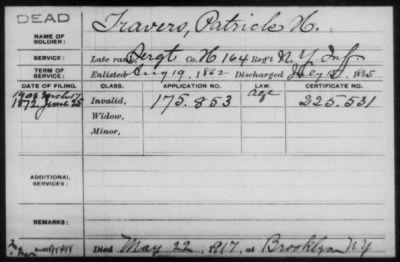 DEAD
NAME OF SOLDIER: Travers, Patrick H.
SERVICE: Late rank, Sergt Co. H 164 Reg't N.Y. Inf
TERM OF SERVICE: Enlisted Aug 19, 1862 Discharged July 1865
DATE OF FILING. CLASS. APPLICATION NO. LAW. CERTIFICATE NO.
1872 June 25 Invalid, 175.853 age 225.531
Widow,
Minor,
ADDITIONAL SERVICES:
REMARKS:
Died May 22, 1917, at Brooklyn N.Y.